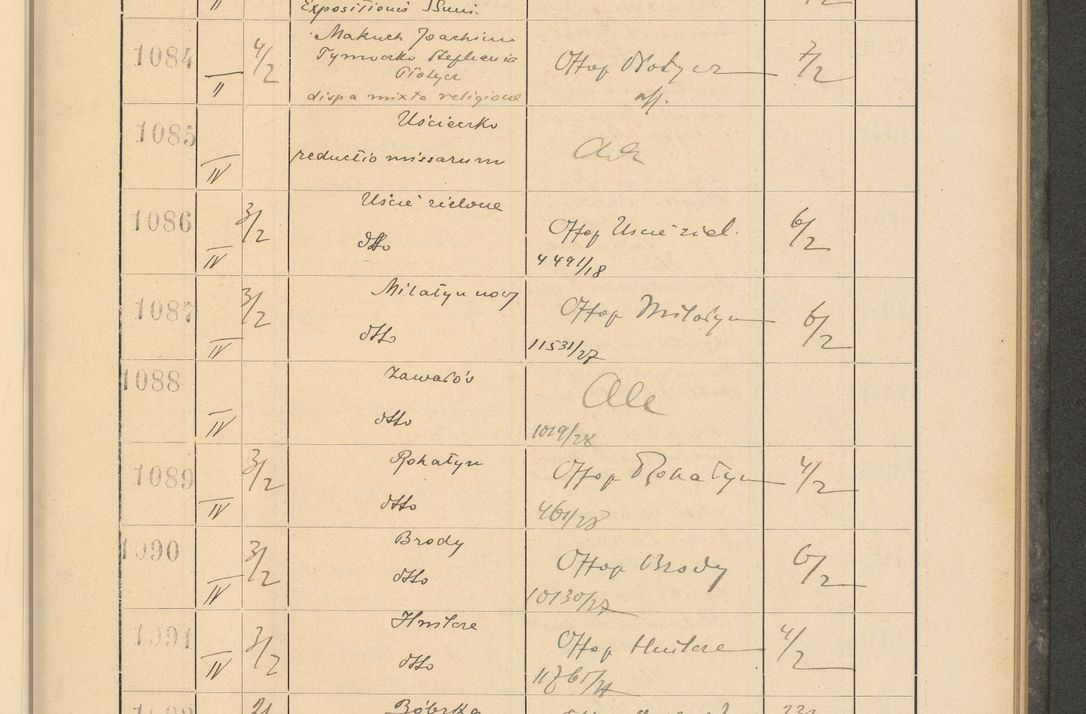 II Expositionis Ssmi.
1084 4/2 Makuch Joachim
Tymoczko Stephania
Płotycz
II dispa mixta religione
Offop Płotycz 7/2
aff.
1085 Uścieczko
IV reductio missarum
1086 3/2 Uście zielone
IV dtto
Offop Uście ziel. 6/2
4491/18
1087 3/2 Milatyn nowy
IV dtto
Offop Milatyn 6/2
11531/27
1088 Zawałów
IV dtto
1019/28
1089 3/2 Rohatyn
IV dtto
Offop Rohatyn 4/2
461/28
1090 3/2 Brody
IV dtto
Offop Brody 6/2
10130/27
1091 3/2 Hnilcze
IV dtto
Offop Hnilcze 4/2
Bóbrka